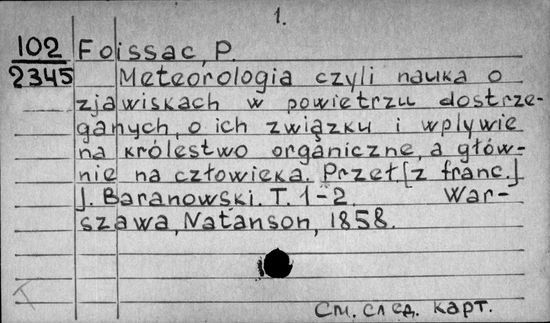 1.
102
2345
Foissac, P.
Meteorologia czyli nauka o
zjawiskach w powietrzu dostrze-
ganych, o ich związku i wpływie
na królestwo organiczne, a głów-
nie na człowieka. Przeł. [z franc.]
J. Baranowski. T. 1-2. War-
szawa, Natanson, 1858.
См. след. карт.